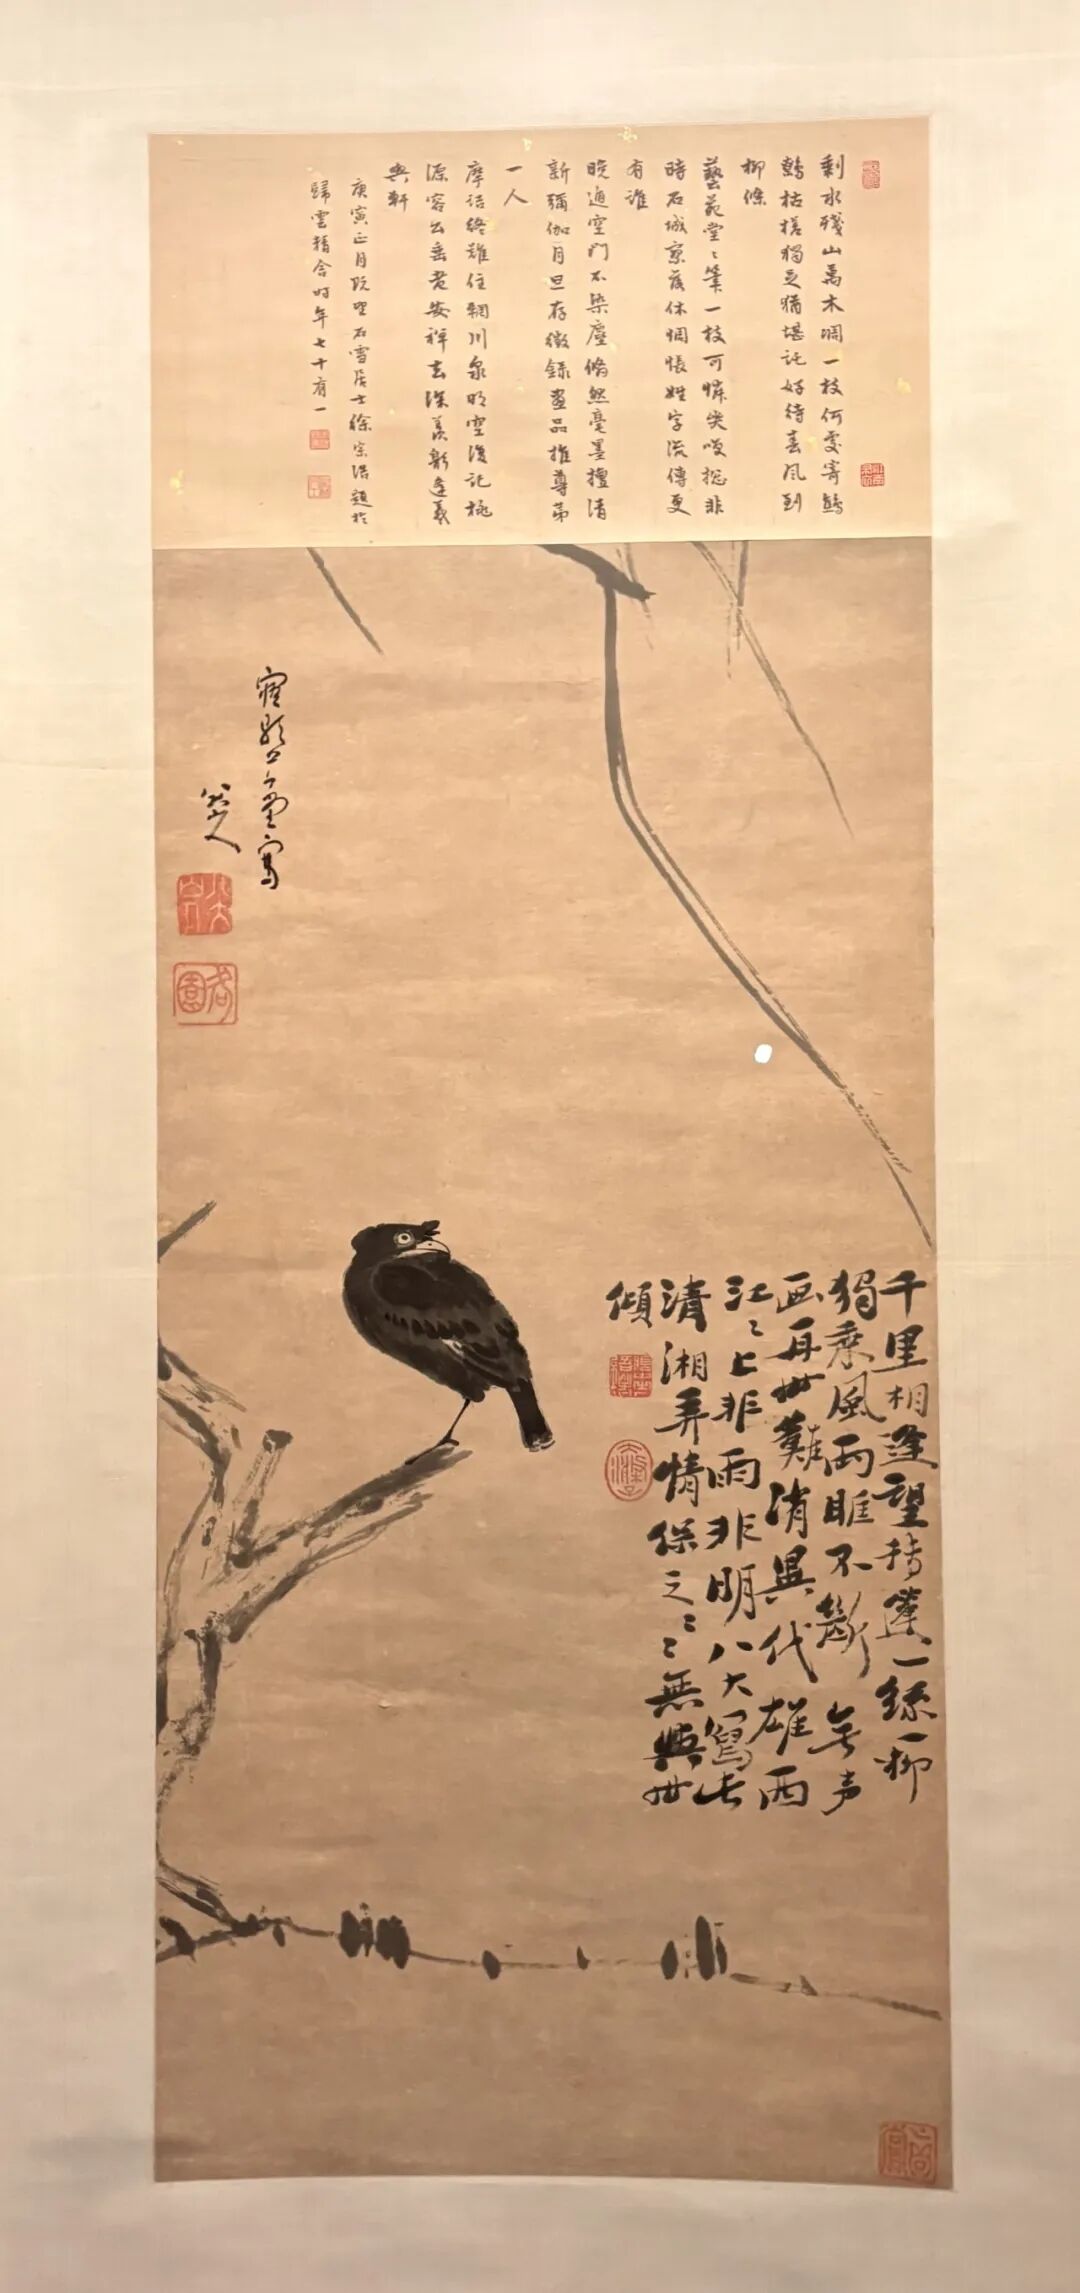 剩水殘山萬木凋一枝何處寄鷦
鷯枯槎獨立猶堪託好待春風到
柳條
藝苑堂〻筆一枝可憐哭笑總非
時石城寥落休惆悵姓字流傳更
有誰
晚遁空門不染塵翛然毫墨擅清
新彌伽月旦存徵錄畫品推尊第
一人
摩詰終難住輞川泉明空復記桃
源容公垂老安禪去深羨
與軒
庚寅正月既望石雪居士徐宗浩題於
歸雲精舍時年七十有一
寤歌草堂寫
八大山人
千里相逢望指篷一絲一柳
獨乘風雨不斷無声
画再世難消異代雄西
江〻上非雨非明八大寫此
清湘弄情保之〻〻無與世
傾